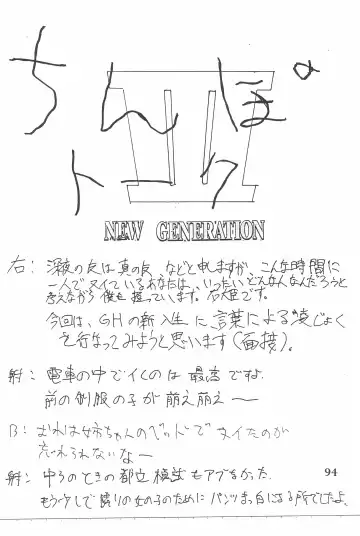 ちんぽ
トーク
NEW GENERATION
右: 深夜の友は真の友、などと申しますが、こんな時間に
一人でヌイているあなたは、いったいどんな人なんだろうと
考えながら僕も握っています。右
です。
今回は、GHの新入生に言葉による
じょく
を行なってみようと思います(面接)。
電車の中でイくのは最高ですよ。
前の制服の子が萌え萌え〜
B: おれは姉ちゃんのベッドでヌイたのが
忘れられないな〜
中3のときの都立模試もアブなかった。
94
もう少しで隣りの女の子のためにパンツまっ白になる所でしたよ。